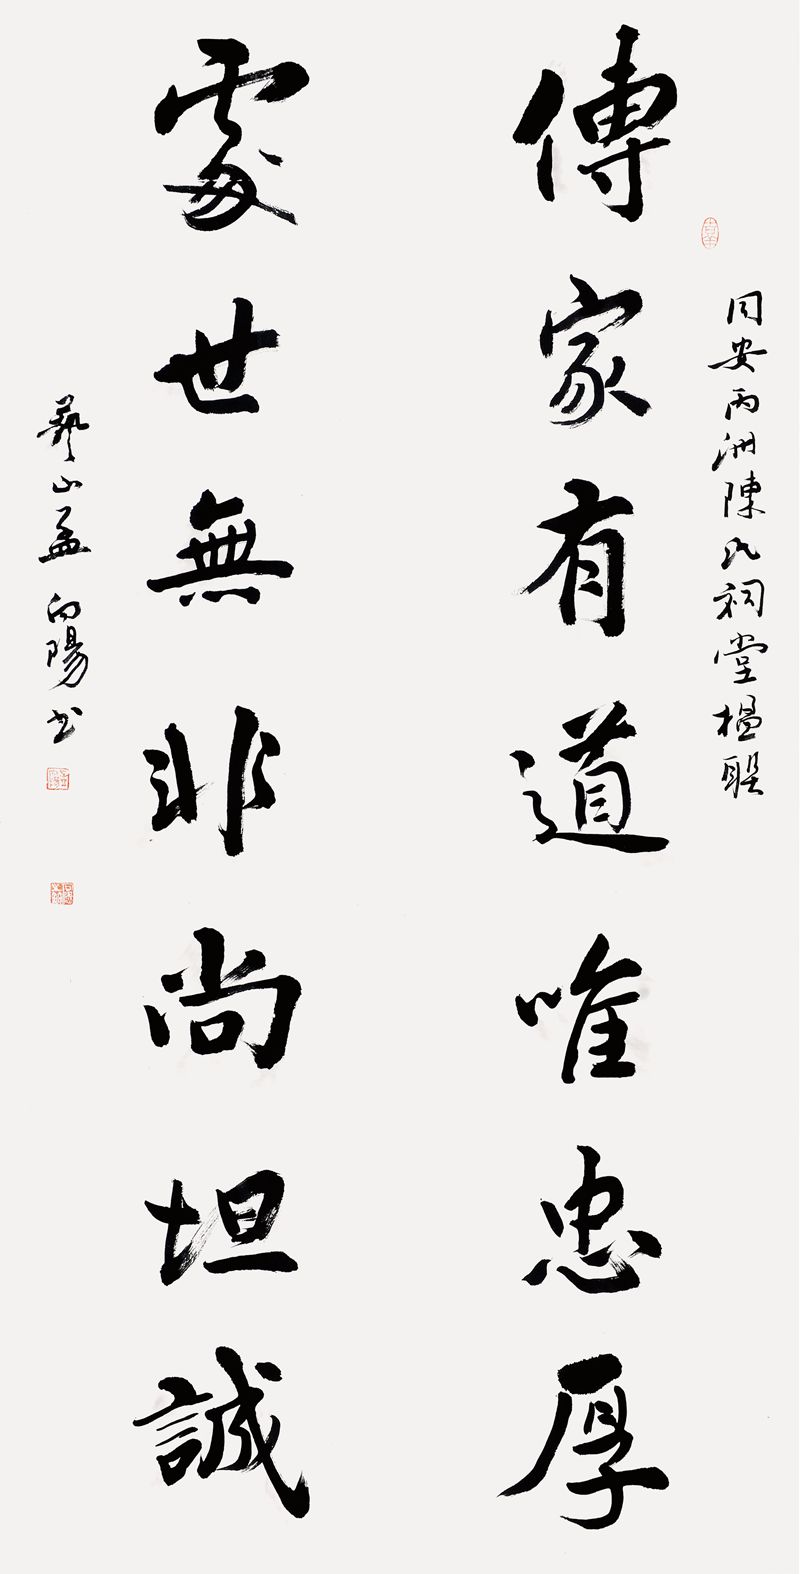 同安丙洲陳氏祠堂楹联
傳家有道唯忠厚
處世無非尚坦誠
山孟向陽书